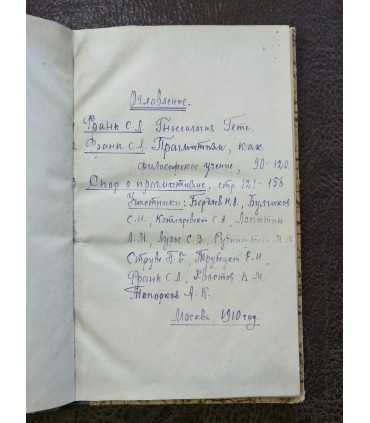 Оглавление.
Франк С.Л. Гносеология Гете.
Франк С.Л. Прагматизм, как
философское учение, 90-120.
Спор о прагматизме, стр. 121-156
Участники: Бердяев Н.А, Булгаков
С.Н, Котляревский С.А, Лопатин
Л.М, Лурье С.В, Рубинштейн М.М
Струве П.Б. Трубецкой Е.Н,
Франк С.Л, Хвостов В.М.
Топорков А.К.
Москва 1910 год.